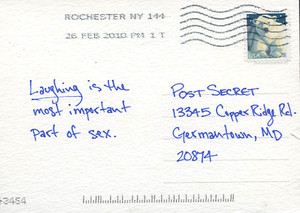 ROCHESTER NY 144
26 FEB 2010 PM 1 T
Laughing is the
most important
part of sex.
POST SECRET
13345 Copper Ridge Rd.
Germantown, MD
20874
43454